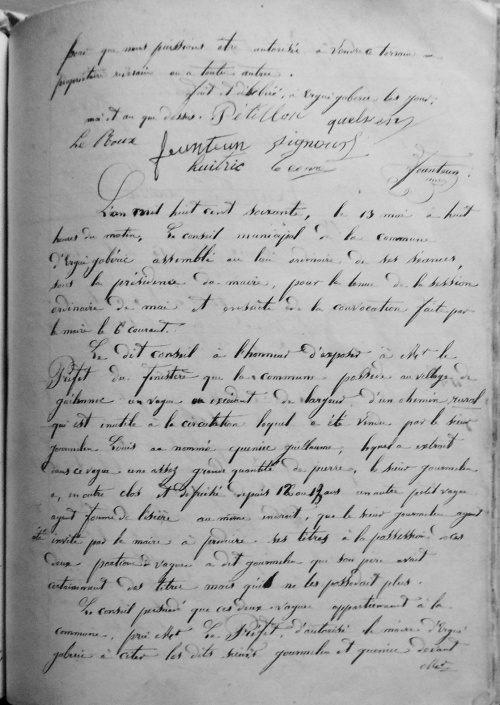 pour que nous puissions être autorisé à vendre ce terrain
propriétaire riverain ou à toute autres.
fait et délibéré, à Ergué gabéric les jour,
moi et an que dessus. Pétillon
Le Roux Jeantun Signour
huitric le corre Jeantun
L'an mil huit cent soixante, le 13 mai à huit
heures du matin, Le conseil municipal de la commune
d'Ergué gabéric assemblé au lieu ordinaire de ses séances
sous la présidence du maire, pour la tenue de la session
ordinaire de mai et ensuite de la convocation fait par
le maire le 6 courant.
Le dit conseil à l'honneur d'exposer à Mr le
Préfet du finistère que la commune possède au village de
un vague ou excédant de largeur d'un chemin rural
qui est inutile à la circulation lequel a été vendu par le sieur
gourmelen Louis au nommé quenéec guillaume, lequel a extrait
dans ce vague une assez grande quantité de pierre, le sieur gourmelen
a, en outre clos et défriché depuis 12 ou 13 ans un autre petit vague
ayant forme de lisière au même endroit, que le sieur gourmelen ayant
été invité par le maire à produire ses titres à la possession de ces
deux portion de vagues a dit gourmelen que son père avait
certainement des titres mais qu'il ne les possédait plus.
Le conseil persuadé que ces deux vagues appartiennent à la
commune, prie Mr Le Préfet, d'autorisé le maire d'Ergué
gabéric à citer les dits sieurs gourmelen et quenéec devant